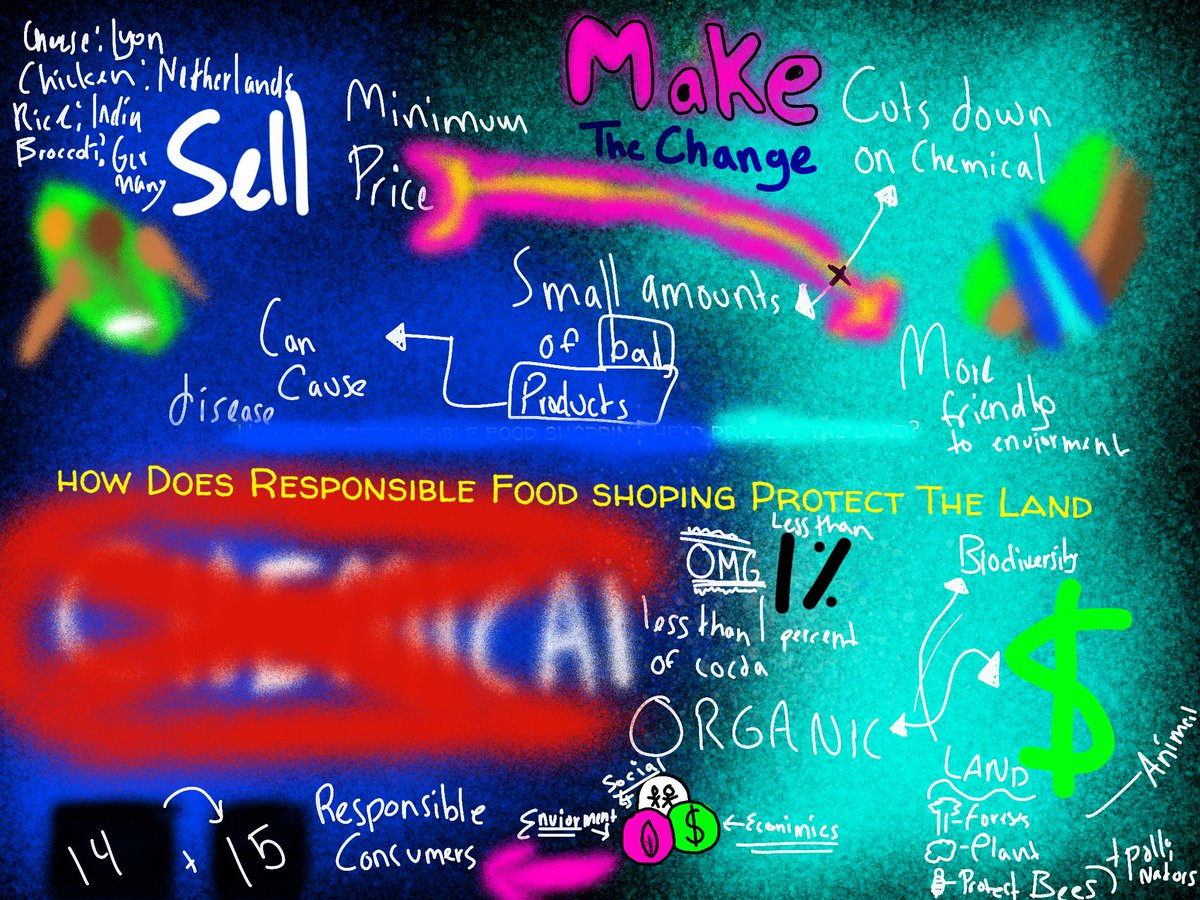 Cheese: Lyon
Chicken: Netherlands
Rice: India
Broccoti: Ger
many
Sell
Minimum
Price
Make
The Change
Cuts down
on Chemical
Small amounts
of bad
Products
Can
Cause
disease
More
friendly
to enviorment
HOW DOES RESPONSIBLE FOOD SHOPING PROTECT THE LAND
OMG
Less than
1%
less than 1 percent
of cocoa
Biodiversity
$
ORGANIC
LAND
Forests
-Plant
-Protect Bees
+ Polli
Nators
Animal
Social
Enviorment
$
Econimics
Responsible
Consumers
14 + 15